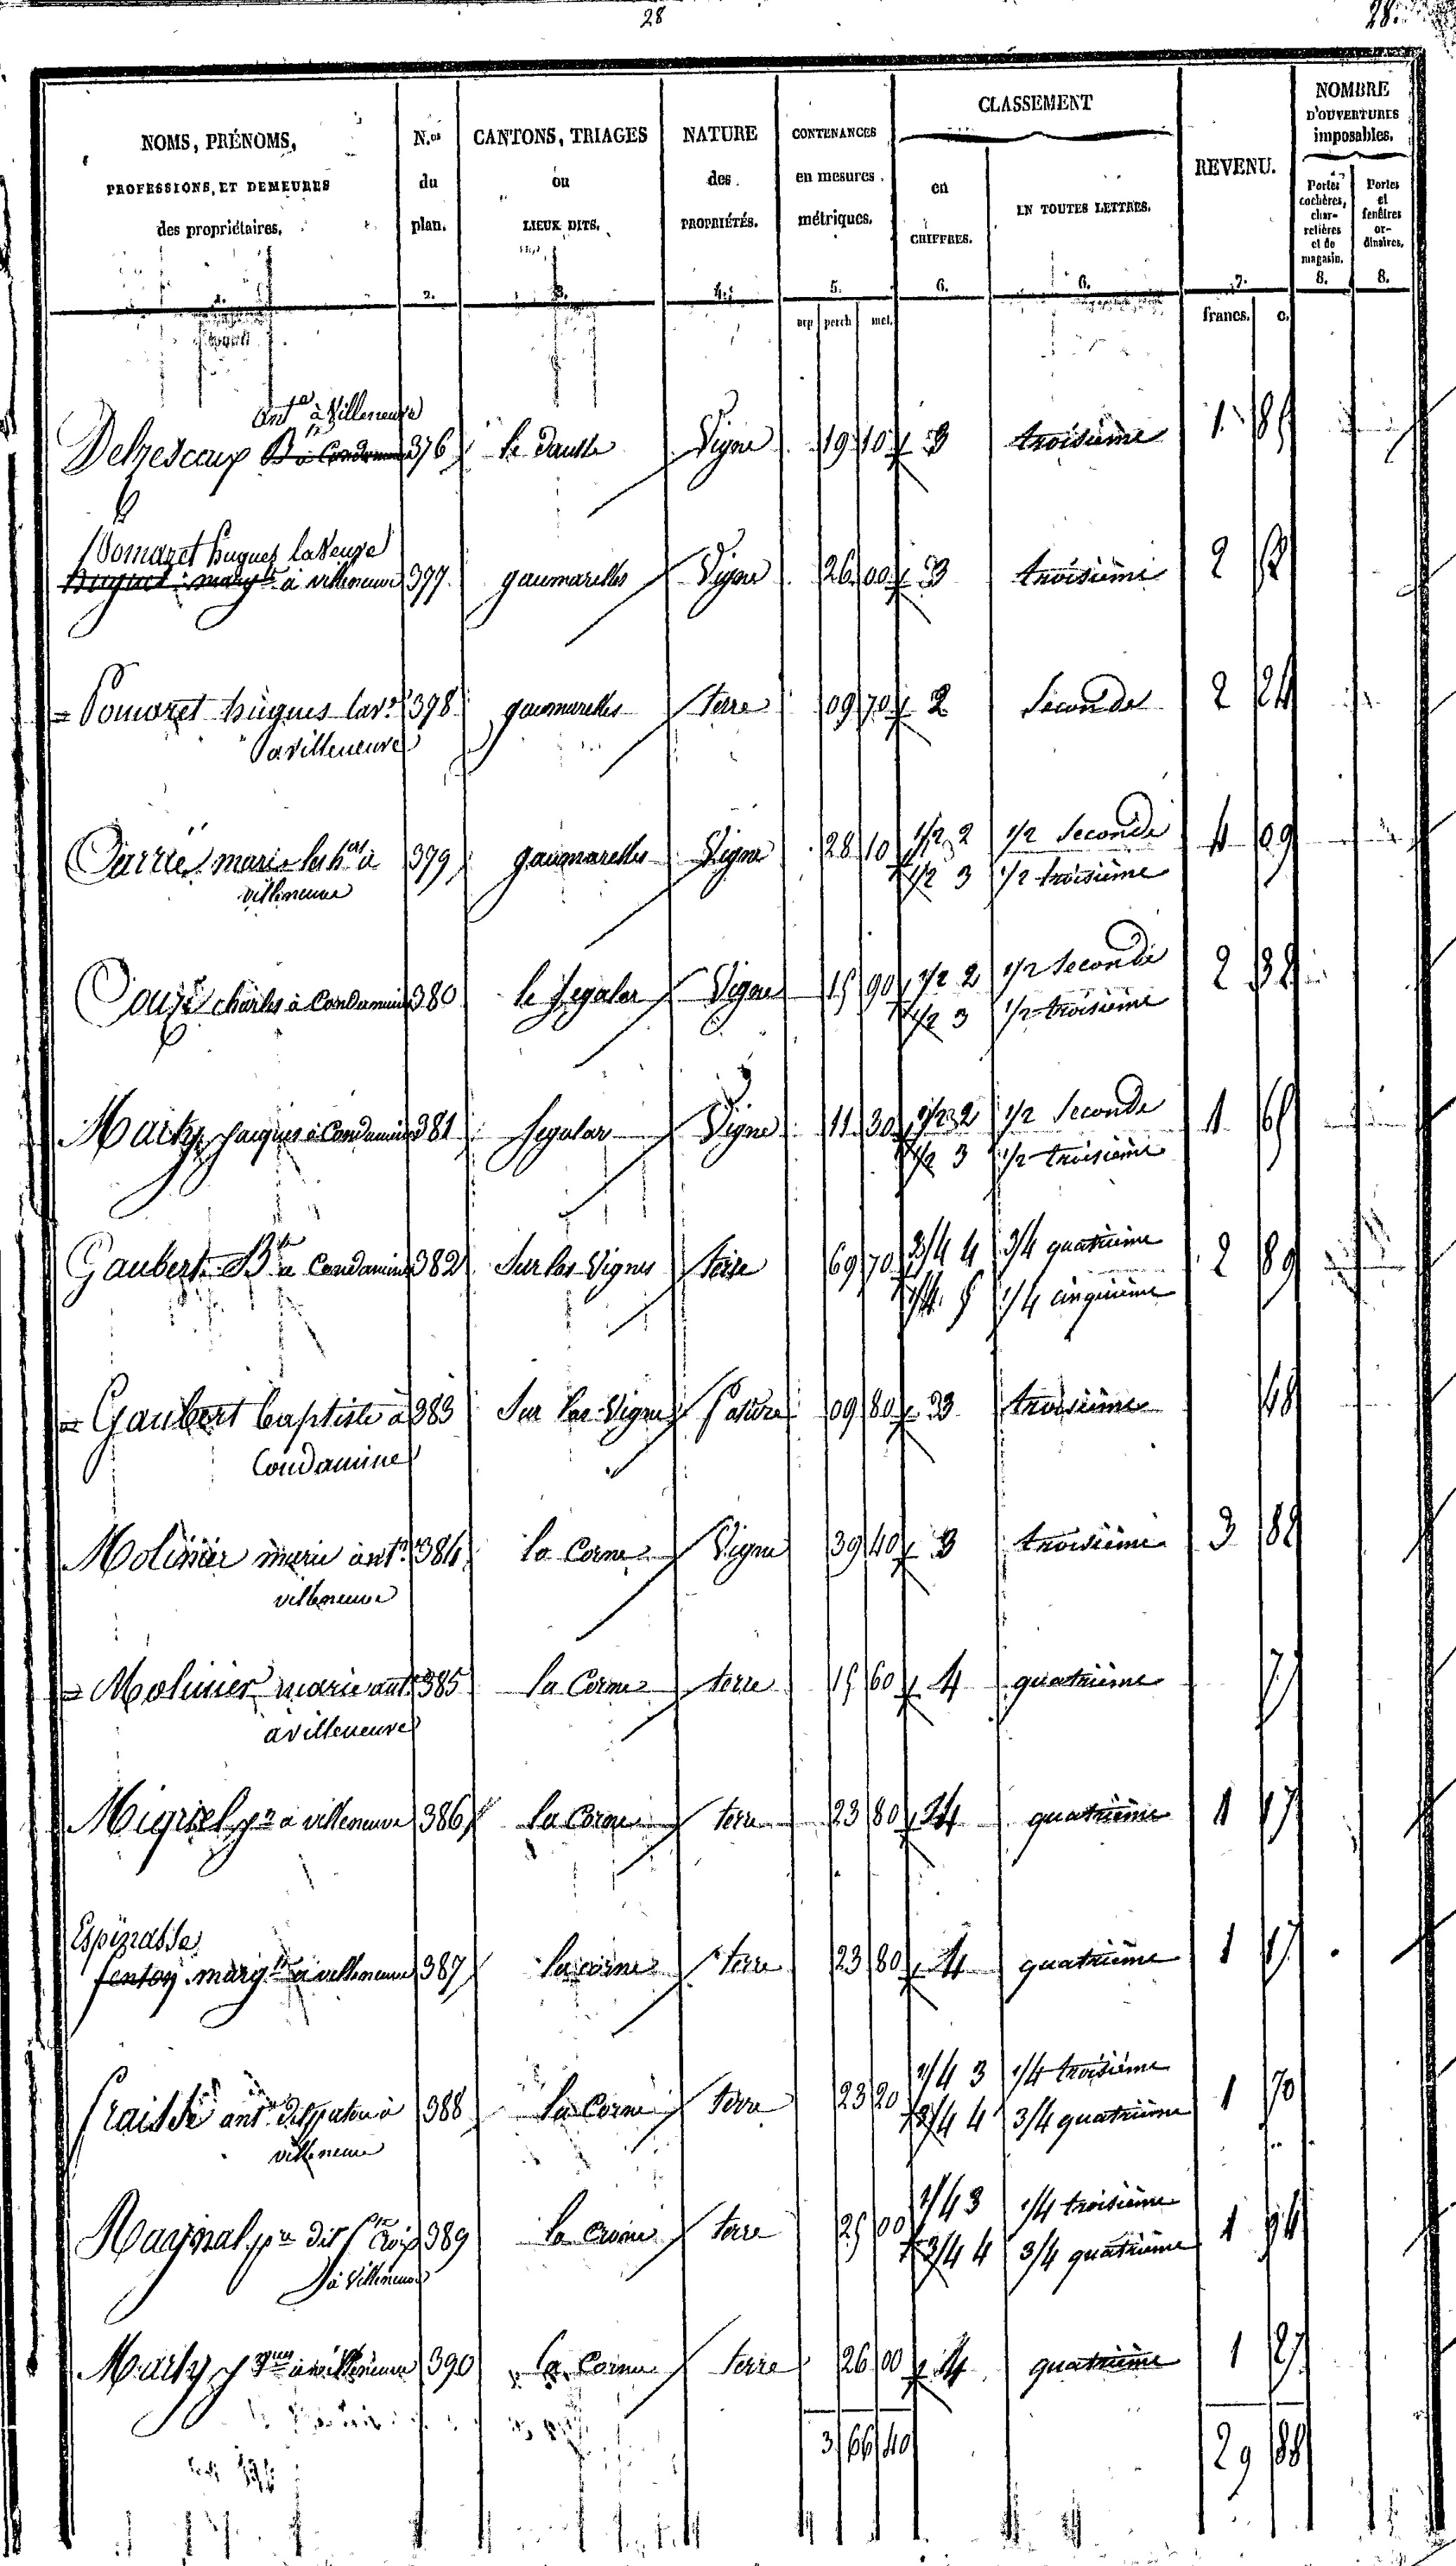 28
28.
NOMS, PRÉNOMS, PROFESSIONS, ET DEMEURES des propriétaires. 1.
N.os du plan. 2.
CANTONS, TRIAGES ou LIEUX DITS. 3.
NATURE des PROPRIÉTÉS. 4.
CONTENANCES en mesures métriques. 5.
CLASSEMENT
en CHIFFRES. 6.
EN TOUTES LETTRES. 6.
REVENU. 7.
NOMBRE D'OUVERTURES imposables.
Portes cochères, charretières et de magasin. 8.
Portes et fenêtres ordinaires. 8.
arp perch met. francs. c.
ant.e à Villeneuve
Delrescaux 376 Vigne 19 10 3 troisième 1
Pomaret hugues la Veuve
à villeneuve 377 gaumarelles Vigne 26 00 3 troisième 2
= Pomaret hugues la v.e 398 gaumarelles terre 09 70 2 Seconde 2 24
à villeneuve
marie les h.ers à 379 gaumarelles Vigne 28 10 1/2 2 1/2 Seconde 4 09
villeneuve 1/2 3 1/2 troisième
charles à Condamine 380 le Segalar Vigne 15 90 1/2 2 1/2 Seconde 2
1/2 3 1/2 troisième
Marty Jacques à Condamine 381 Segalar Vigne 11 30 1/2 2 1/2 Seconde 1 65
1/2 3 1/2 troisième
Gaubert B.te à Condamine 382 Sur las Vignes terre 69 70 3/4 4 3/4 quatrième 2 89
1/4 5 1/4 cinquième
= Gaubert baptiste à 383 Sur las Vignes Pature 09 80 3 troisième 48
Condamine
Molinier marie ant.e 384 la Corne Vigne 39 40 3 troisième 3
villeneuve
= Molinier marie ant.e 385 la Corne terre 15 60 4 quatrième 77
à villeneuve
Miquel p.re à villeneuve 386 la Corne terre 23 80 4 quatrième 1 17
Espinasse
marg.te à villeneuve 387 la corne terre 23 80 4 quatrième 1 17
Fraissé ant.e à 388 la Corne terre 23 20 1/4 3 1/4 troisième 1 70
villeneuve 3/4 4 3/4 quatrième
Raynal p.re dit 389 terre 25 00 1/4 3 1/4 troisième 1
à villeneuve 3/4 4 3/4 quatrième
Marty à villeneuve 390 la Corne terre 26 00 4 quatrième 1 27
3 66 40 29 88